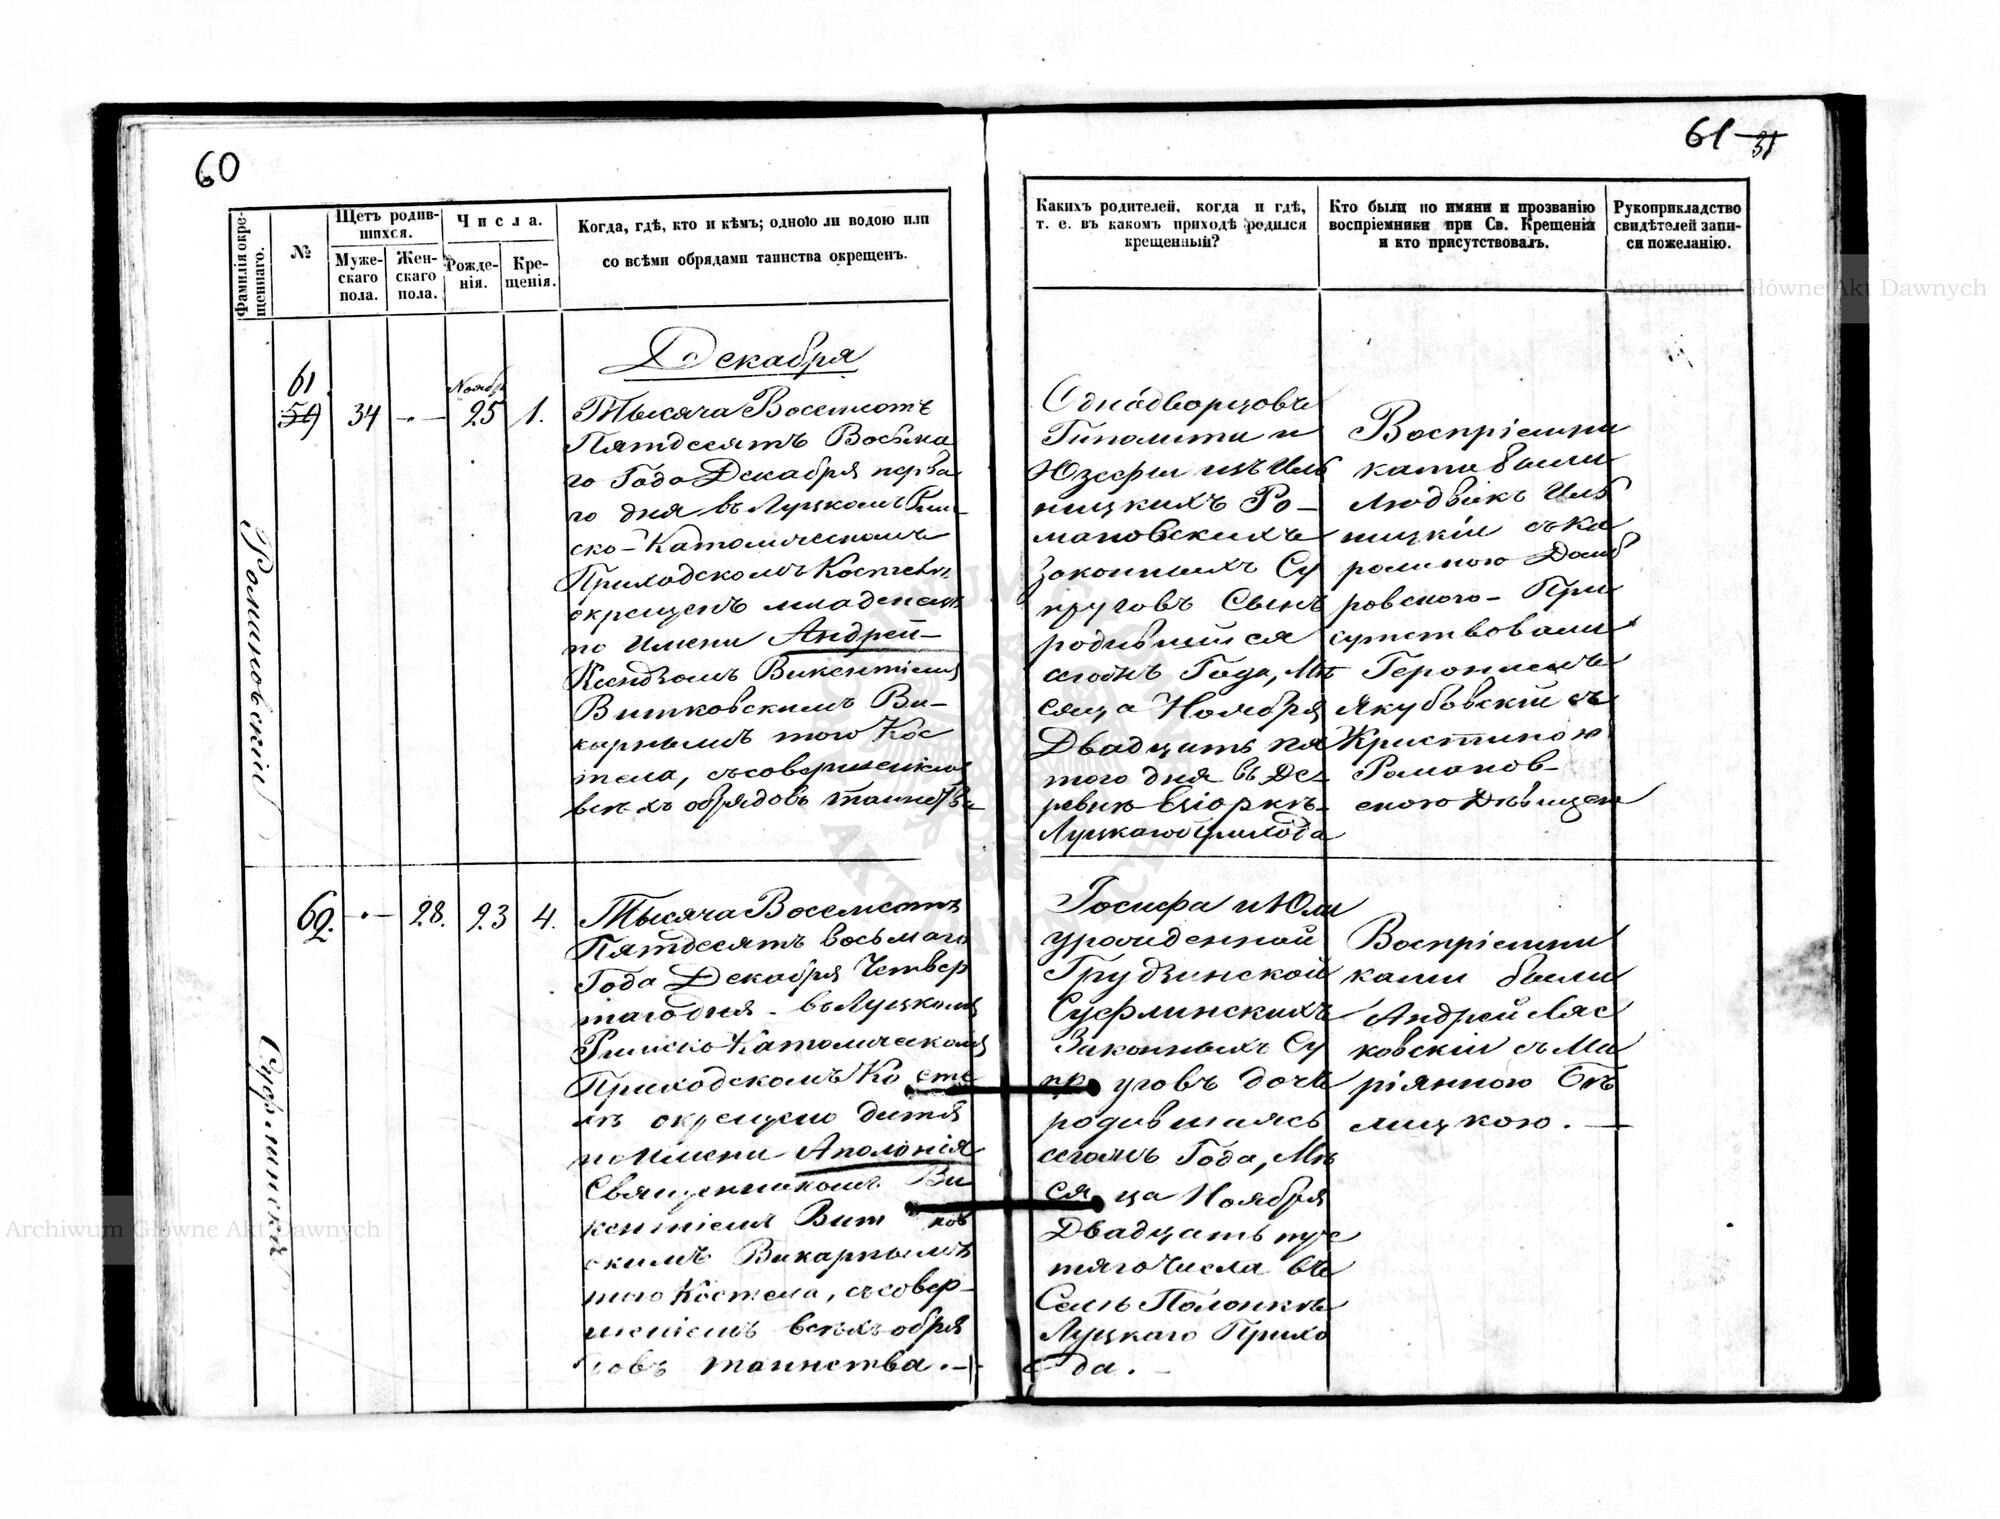 60
61
31
Фамилія окре-
щеннаго.
№
Щетъ родив-
шихся.
Муже-
скаго
пола.
Жен-
скаго
пола.
Числа.
Рожде-
нія.
Кре-
щенія.
Когда, гдѣ, кто и кѣмъ; одною ли водою или
со всѣми обрядами таинства окрещенъ.
Какихъ родителей, когда и гдѣ,
т. е. въ какомъ приходѣ родился
крещенный?
Кто были по имяни и прозванію
воспріемники при Св. Крещеніи
и кто присутствовалъ.
Рукоприкладство
свидѣтелей запи-
си пожеланію.
Романовскій
61
59
34
Ноябр
25
1.
Декабря
Тысяча Восемсотъ
Пятдесятъ Восьма
го Года Декабря перва
го дня въ Луцкомъ Рим-
ско-Католическомъ
Приходскомъ Костелѣ
окрещенъ младенецъ
по имени Андрей-
Ксендзомъ Викентіемъ
Витковскимъ Ви-
карнымъ того Кос
тела, съ совершеніемъ
всѣхъ обрядовъ таинства
Однодворцовъ
Гиполита и
Юзефы изъ Иль
ницкихъ Ро-
мановскихъ
Законныхъ Су
пруговъ Сынъ
родившійся
сегожъ Года, Мѣ
сяца Ноября
Двадцать пя
того дня въ Де-
ревнѣ
Луцкаго прихода
Воспріемни
ками были
Людвикъ Иль
ницкій съ Ка
ролиною Домб
ровского- При
сутствовали
Геронимъ
Якубовскій съ
Кристиною
Романов-
скою Дѣвицею
Суфлинская
62.
28.
23
4.
Тысяча Восемсотъ
Пятдесятъ восьмаго
Года Декабря Четвер
таго дня - въ Луцкомъ
Римско Католическомъ
Приходскомъ Косте
лѣ окрещено дитя
по Имени Аполонія
Священникомъ Ви
кентіемъ Витков
скимъ Викарнымъ
того Костела, съ совер-
шеніемъ всѣхъ обря
довъ таинства.-
Іосифа и Юлии
урожденной
Грудзинской
Суфлинскихъ
Законныхъ Су
пруговъ дочь
родившаяся
сегожъ Года, Мѣ
сяца Ноября
Двадцать тре
тяго Числа въ
Селѣ Полонкѣ
Луцкаго Прихо
да.-
Воспріемни
ками были
Андрей Ляс
ковскій съ Ма
ріянною Бѣ
лицкою.-
Archiwum Główne Akt Dawnych
Archiwum Główne Akt Dawnych